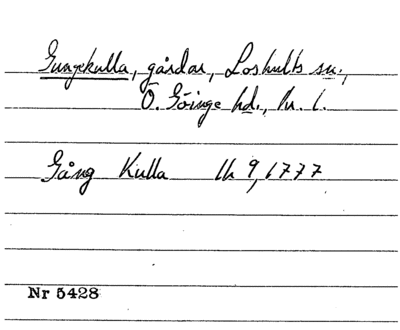 Gungekulla, gårdar, Loshults sn.,
Ö. Göinge hd., Kr. l.
Gång Kulla lh 9, 1777
Nr 5428